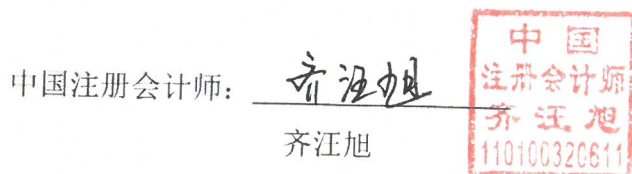 中国注册会计师：齐汪旭
齐汪旭
中国
注册会计师
齐汪旭
110100320611